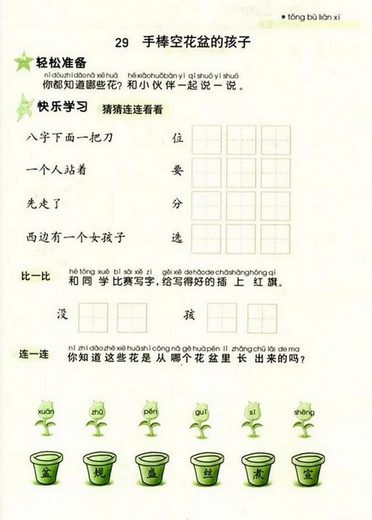 tóng bù liàn xí
29 手捧空花盆的孩子
轻松准备
nǐ dōu zhī dào nǎ xiē huā hé xiǎo huǒ bàn yì qǐ shuō yì shuō
你都知道哪些花？和小伙伴一起说一说。
快乐学习 猜猜连连看看
八字下面一把刀 位
一个人站着 要
先走了 分
西边有一个女孩子 选
hé tóng xué bǐ sài xiě zì gěi xiě de hǎo de chā shàng hóng qí
比一比 和同学比赛写字，给写得好的插上红旗。
没 孩
nǐ zhī dào zhè xiē huā shì cóng nǎ gè huā pén lǐ zhǎng chū lái de ma
连一连 你知道这些花是从哪个花盆里长出来的吗？
xuān zhǔ pén guī sī shèng
盆 规 盛 丝 煮 宣